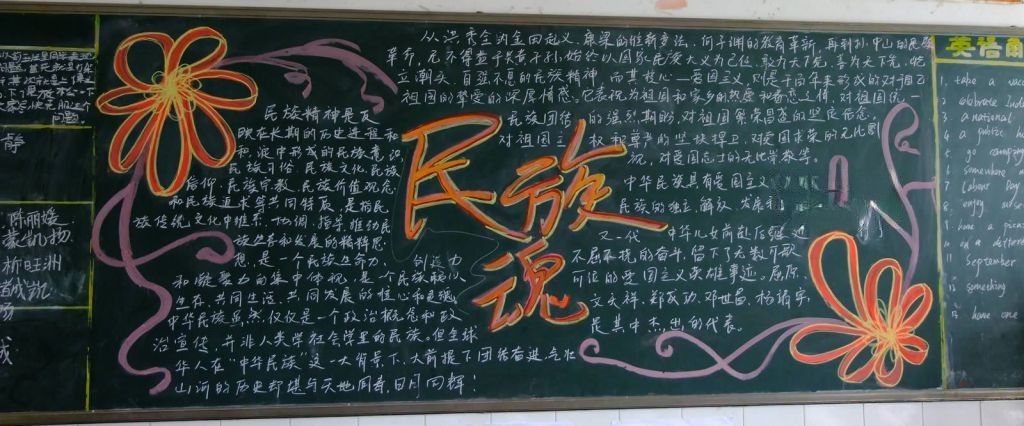 民族魂
从洪秀全的金田起义,康梁的维新变法,何子渊的教育革新,再到孙中山的民族
革命,尤
立潮头,自强不息的民族精神,而其核心—爱国主义,则是千百年来形成的对自己
祖国的挚爱的深厚情感,它表视为祖国和家乡的热爱和眷恋之情,对祖国统一
民族团结的强烈期盼,对祖国繁荣昌盛的坚定信念,
对祖国主权和尊严的坚决捍卫,对卖国求荣的无比鄙
视,对爱国志士的无比崇敬等。
民族精神是反
映在长期的历史进程和
积淀中形成的民族意识,
民族习俗,民族文化,民族
信仰,民族宗教,民族价值观念
和民族追求等共同特质,是指民
族传统文化中维系,协调,指导,推动民
族生存和发展的精粹思
想,是一个民族生命力, 创造力
和凝聚力的集中体视,是一个民族赖以
生存,共同生活,共同发展的核心和灵魂。
中华民族虽然仅仅是一个政治概念和政
治宣传,并非人类学社会学里的民族。但全球
华人在“中华民族”这一大背景下、大前提下团结奋进,气壮
山河的历史却堪与天地同寿,日月同辉!
中华民族具有爱国主义
民族的独立,解放,发展和
又一代 中华儿女前赴后继,
不屈不挠的奋斗,留下了无数可歌
可泣的爱国主义英雄事迹。屈原,
文天祥,郑成功,邓世昌,杨靖宇,
是其中杰出的代表。
问题。
静
陈丽媛
凯扬
旺洲
英语
take a vaca
celebrate Inde
a national
a public ho
go camping
somewhere
Labour Day
enjoy
have a picnic
in a differ
September
something
have one